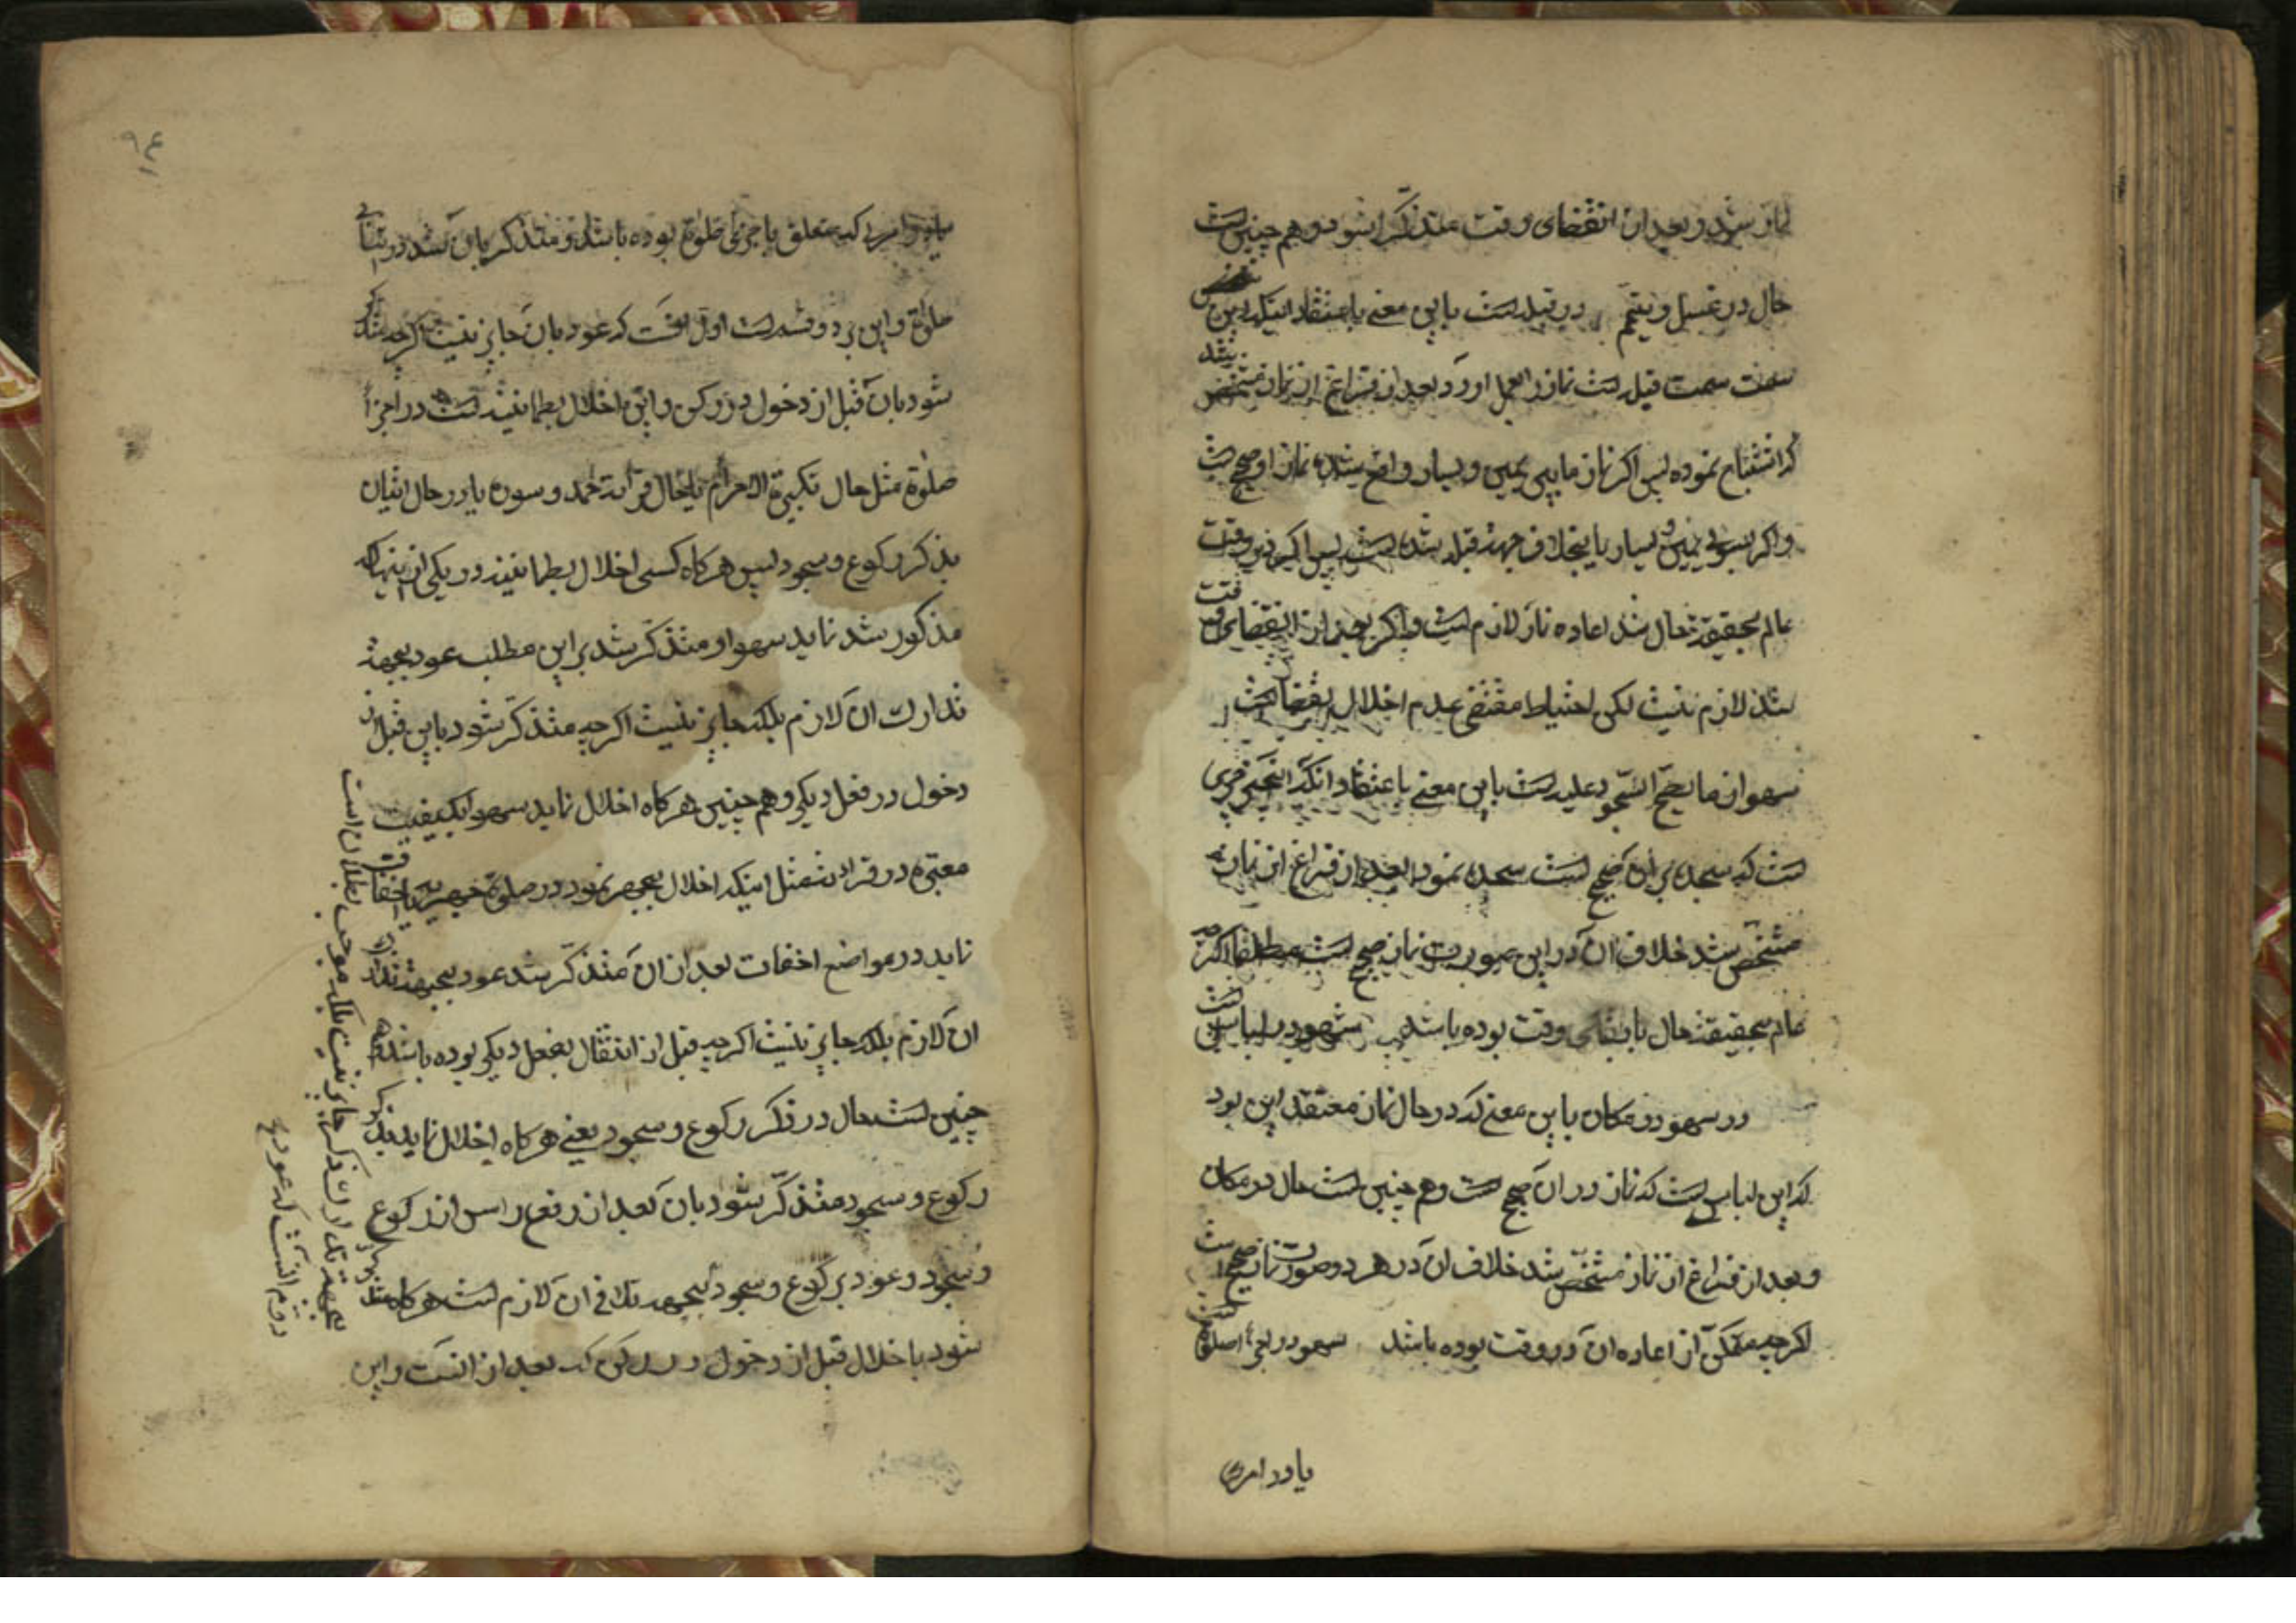 نماز شود و بعد از انقضای وقت متذکر شود و هم چنین است
حال در غسل و تیمم در قبله است باین معنی باعتقاد اینکه این
سمت سمت قبله است نماز را بعمل اورد بعد از فراغ از نماز مشخص شد
که اشتباه نموده پس اکر نماز مابین یمین و یسار واقع شده نماز او صحیح است
و اکر بسوی یمین و یسار یا بخلاف جهة قبله شده است پس اکر در وقت
عالم بحقیقة حال شد اعاده نماز لازم است و اکر بعد از انقضای وقت
شد لازم نیست لکن احتیاط مقتضی عدم اخلال بقضا است
سهو از ما یصح السجود علیه است باین معنی باعتقاد انکه این چیزی
است که سجده بر ان صحیح است سجده نمود بعد از فراغ از نماز
مشخص شد خلاف ان در این صورت نماز صحیح است مطلقا اکر چه
عالم بحقیقة حال با بقای وقت بوده باشد سهو در لباس است
در سهو در مکان باین معنی که در حال نماز معتقد این بود
که این لباسی است که نماز در ان صحیح است و هم چنین است حال در مکان
و بعد از فراغ از نماز مشخص شد خلاف ان در هر دو صورت نماز صحیح است
اکر چه متمکن از اعاده ان در وقت بوده باشد سهو در اجزاء صلوة است
یا در امری
۹۴
یا در امری که متعلق باجزای صلوة بوده باشد و متذکر بان شد در اثنای
صلوة و این بر دو قسم است اول انست که عود بان جایز نیست اکر چه متذکر
شود بان قبل از دخول در رکن و این اخلال بطمانینه است در اجزاء
صلوة مثل حال تکبیرة الاحرام یا حال قرائت حمد و سوره یا در حال اتیان
بذکر رکوع و سجود پس هرکاه کسی اخلال بطمانینه در یکی از اینها که
مذکور شد نماید سهوا و متذکر شد بر این مطلب عود بجهة
تدارک ان لازم بلکه جایز نیست اکر چه متذکر شود باین قبل از
دخول در فعل دیکر و هم چنین هرکاه اخلال نماید سهوا بکیفیت
معتبره در قرائت مثل اینکه اخلال بجهر نمود در صلوة جهریه یا اخفات
نماید در مواضع اخفات بعد از ان متذکر شد عود بجهة تدارک
ان لازم بلکه جایز نیست اکر چه قبل از انتقال بفعل دیکر بوده باشد و هم
چنین است حال در ذکر رکوع و سجود یعنی هرکاه اخلال نماید بذکر
رکوع و سجود متذکر شود بان بعد از رفع راس از رکوع
و سجود و عود برکوع و سجود بجهة تلافی ان لازم است هرکاه متذکر
شود باخلال قبل از دخول در رکن که بعد از انست و این
بجهة تدارک ذکر جایز نیست بلکه موجب بطلان است
دوم انست که عود